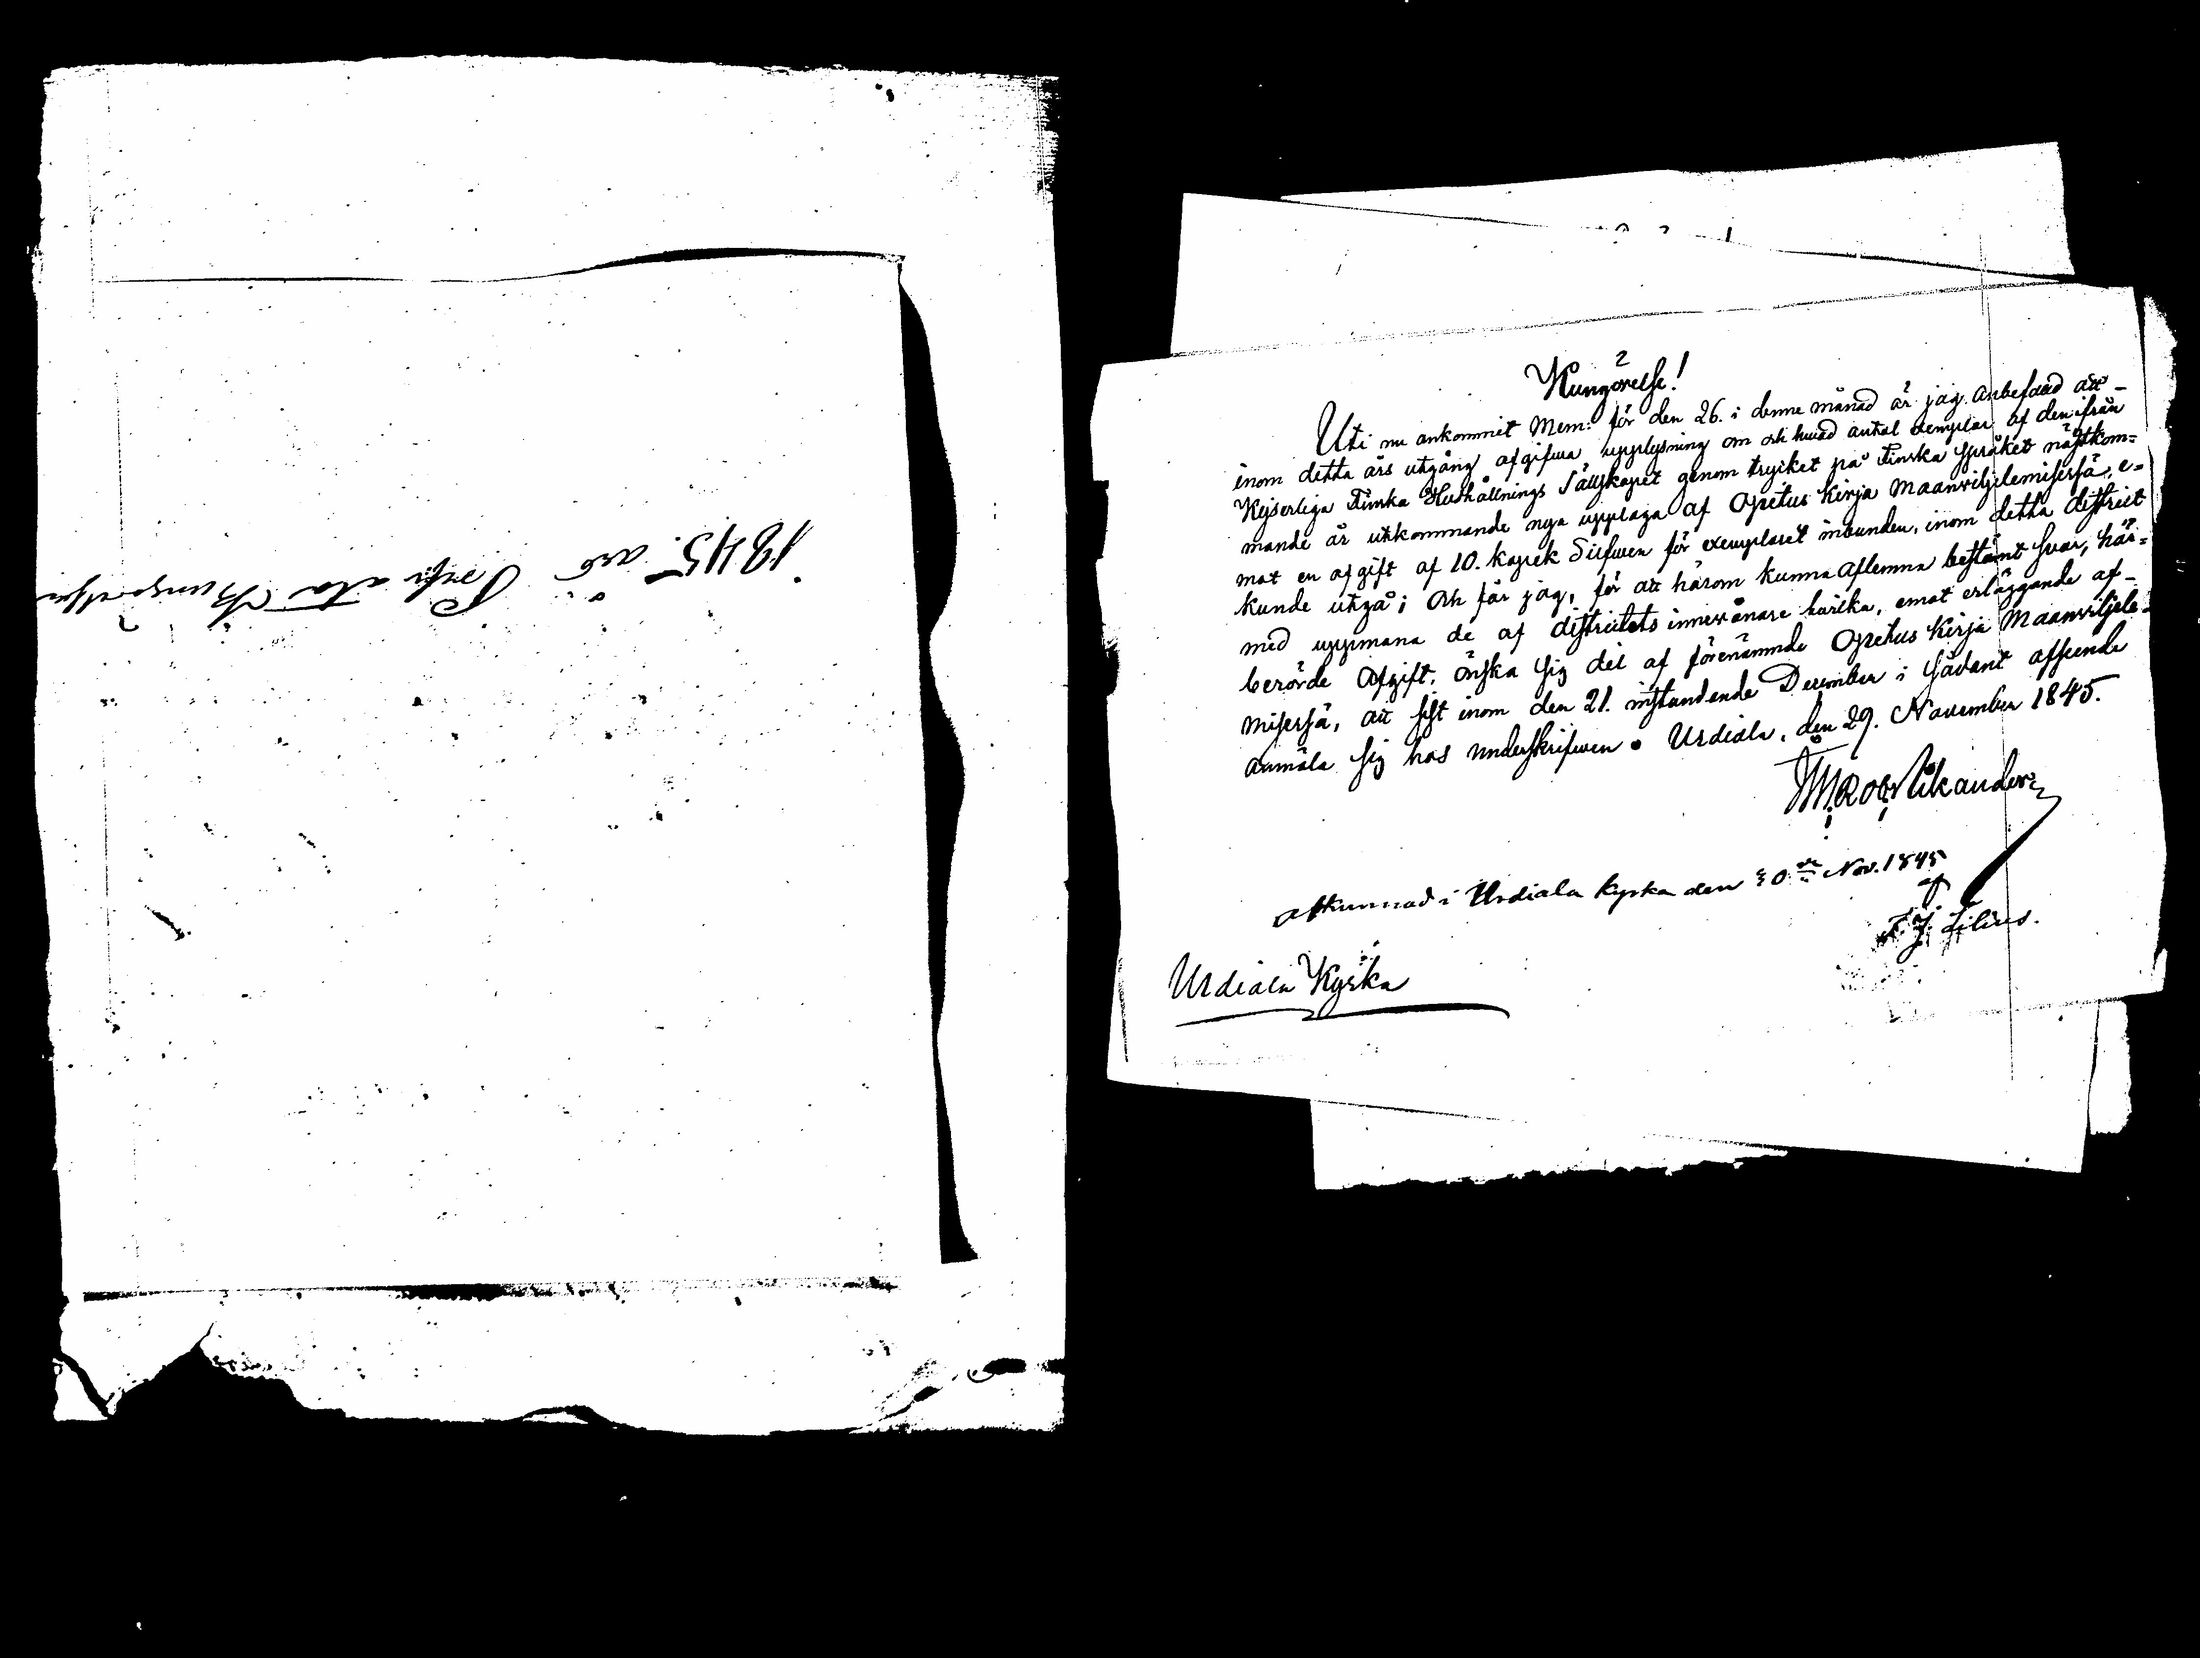 1845. års
Kungörelse!
Uti nu ankommit Mem: för den 26. i denne månad är jag anbefald att
inom detta års utgång afgifwa upplysning om och hwad antal exemplar af den ifrån
Kejserliga Finska Hushållnings Sällskapet genom trycket på Finska Språket nästkom=
mande år utkommande nya upplaga af Opetus Kirja Maanviljelemisesä, e=
mot en afgift af 10. kopek Silfwer för exemplaret inbunden, inom detta district
kunde utgå; och får jag, för att härom kunna aflemna bestämt svar, här=
med uppmana de af districtets innewånare hwilka, emot erläggande af
berörde Afgift, önska sig del af förenämnde Opetus Kirja Maanviljele-
misesä, att sist inom den 21. instundende December i sådant afseende
anmäla sig hos underskrifwen. Urdiala, den 29. November 1845.
Robt Wikander
Afkunnad i Urdiala kyrka den 30de Nov. 1845
af
F. J. Lilius.
Urdiala Kyrka